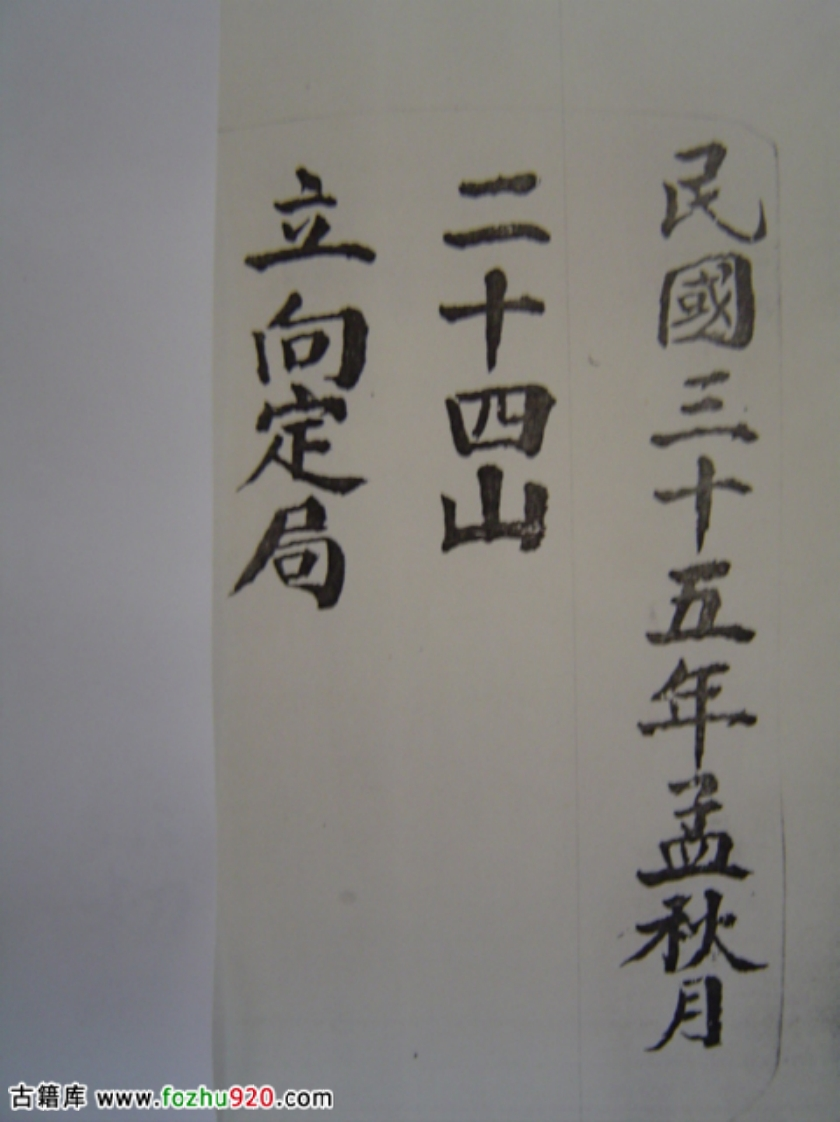 民國三十五年孟秋月
二十四山
立向定局
古籍库 www.fozhu920.com